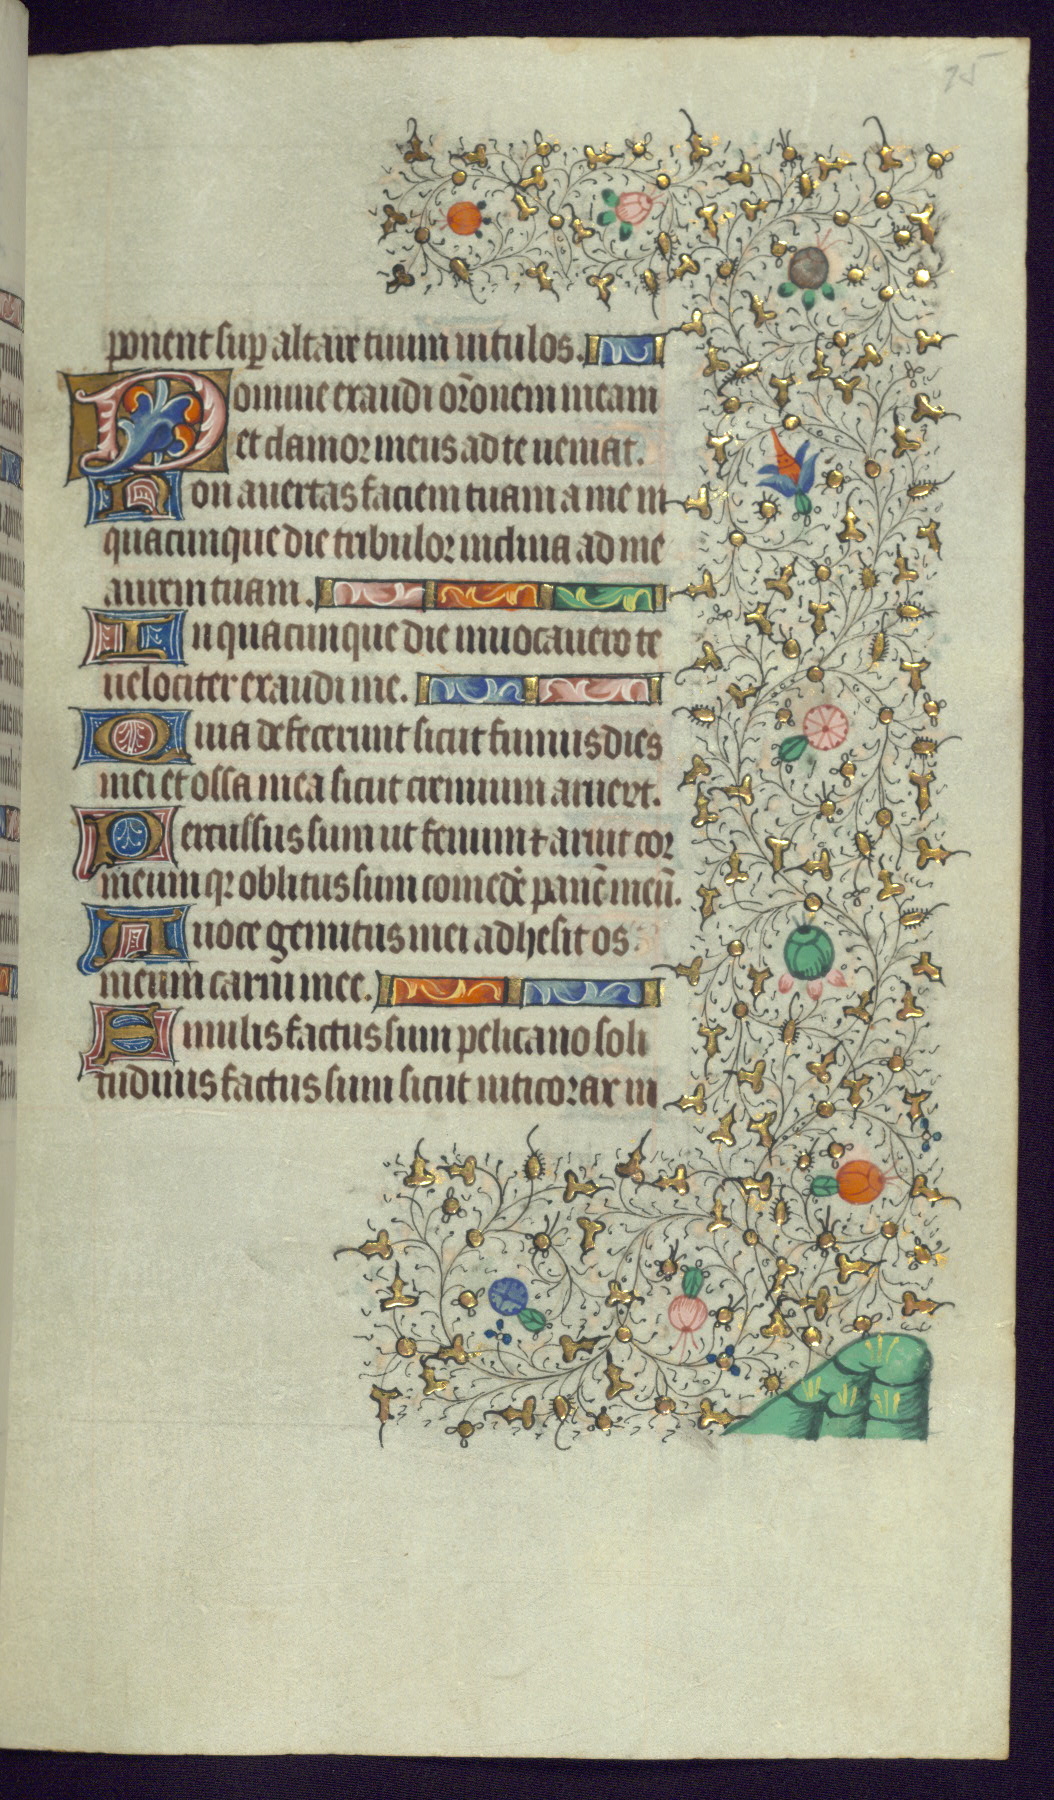 75
ponent sup altare tuum uitulos.
Domine exaudi or̄onem meam
et clamor meus ad te ueniat.
Non auertas faciem tuam a me in
quacunque die tribulor inclina ad me
aurem tuam.
In quacunque die inuocauero te
uelociter exaudi me.
Quia defecerunt sicut fumus dies
mei et ossa mea sicut cremium aruert.
Percussus sum ut fenum ⁊ aruit cor
meum qꝛ oblitus sum comedē panē meū.
A uoce gemitus mei adhesit os
meum carni mee.
Similis factus sum pelicano soli
tudinis factus sum sicut niticorax in